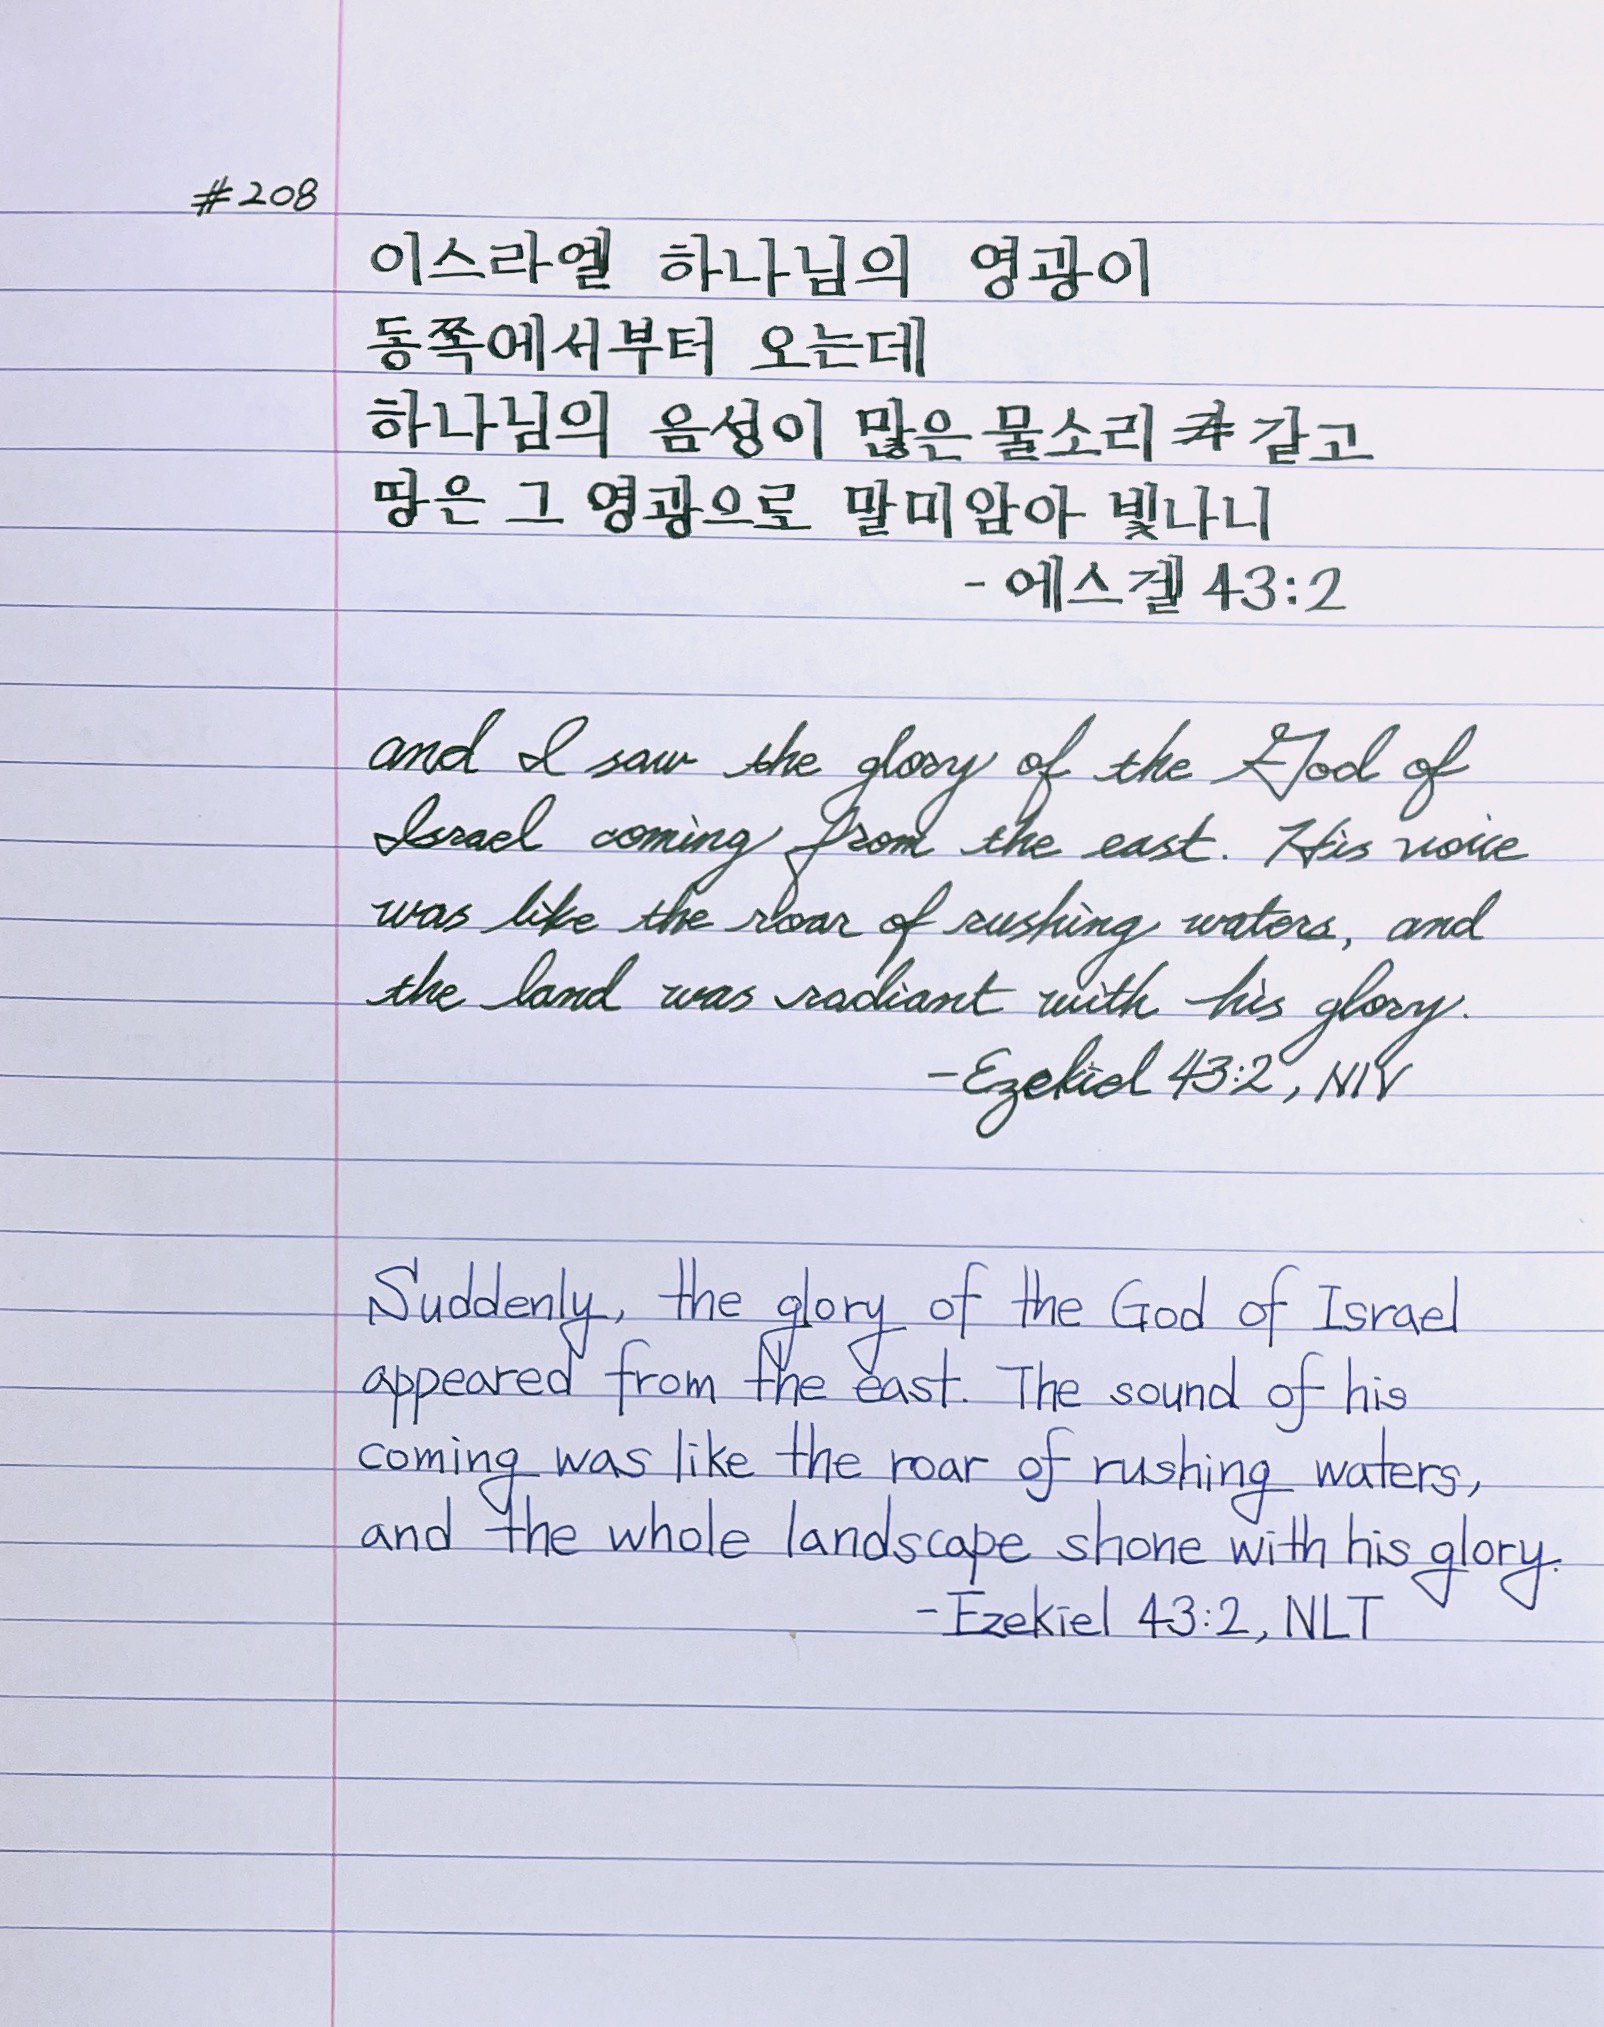 #208
이스라엘 하나님의 영광이
동쪽에서부터 오는데
하나님의 음성이 많은 물소리 같고
땅은 그 영광으로 말미암아 빛나니
- 에스겔 43:2
and I saw the glory of the God of
Israel coming from the east. His voice
was like the roar of rushing waters, and
the land was radiant with his glory.
-Ezekiel 43:2, NIV
Suddenly, the glory of the God of Israel
appeared from the east. The sound of his
coming was like the roar of rushing waters,
and the whole landscape shone with his glory.
-Ezekiel 43:2, NLT